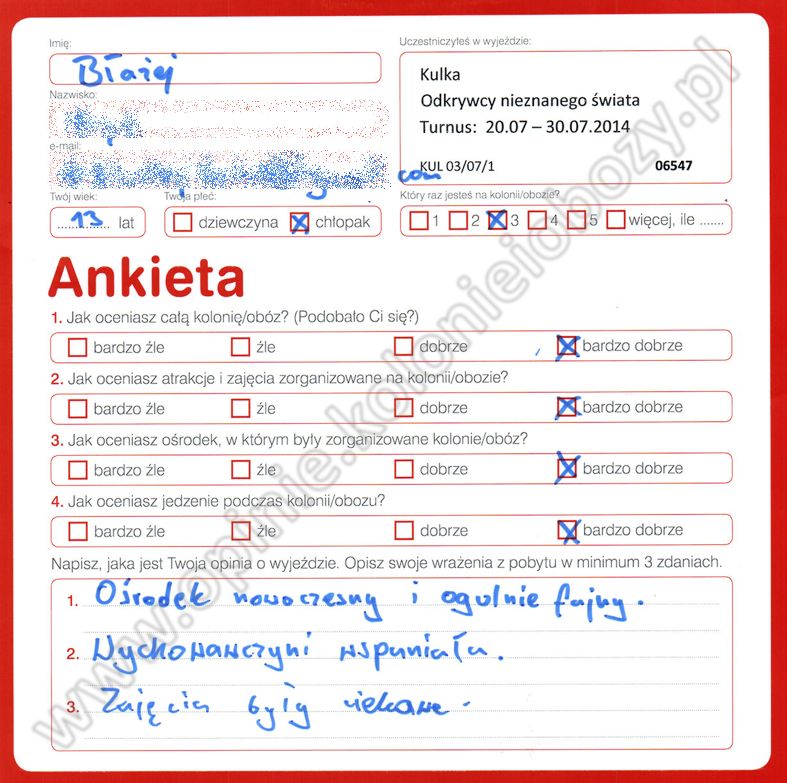 Imię:
Błażej
Nazwisko:
e-mail:
com
Twój wiek:
13 lat
Twoja płeć:
dziewczyna chłopak
Uczestniczyłeś w wyjeździe:
Kulka
Odkrywcy nieznanego świata
Turnus: 20.07 – 30.07.2014
KUL 03/07/1 06547
Który raz jesteś na kolonii/obozie?
1 2 3 4 5 więcej, ile .......
Ankieta
1. Jak oceniasz całą kolonię/obóz? (Podobało Ci się?)
bardzo źle źle dobrze bardzo dobrze
2. Jak oceniasz atrakcje i zajęcia zorganizowane na kolonii/obozie?
bardzo źle źle dobrze bardzo dobrze
3. Jak oceniasz ośrodek, w którym były zorganizowane kolonie/obóz?
bardzo źle źle dobrze bardzo dobrze
4. Jak oceniasz jedzenie podczas kolonii/obozu?
bardzo źle źle dobrze bardzo dobrze
Napisz, jaka jest Twoja opinia o wyjeździe. Opisz swoje wrażenia z pobytu w minimum 3 zdaniach.
1. Ośrodek nowoczesny i ogulnie fajny.
2. Wychowawczyni wspaniała.
3. Zajęcia były ciekawe.
www.opinie.kolonieiobozy.pl